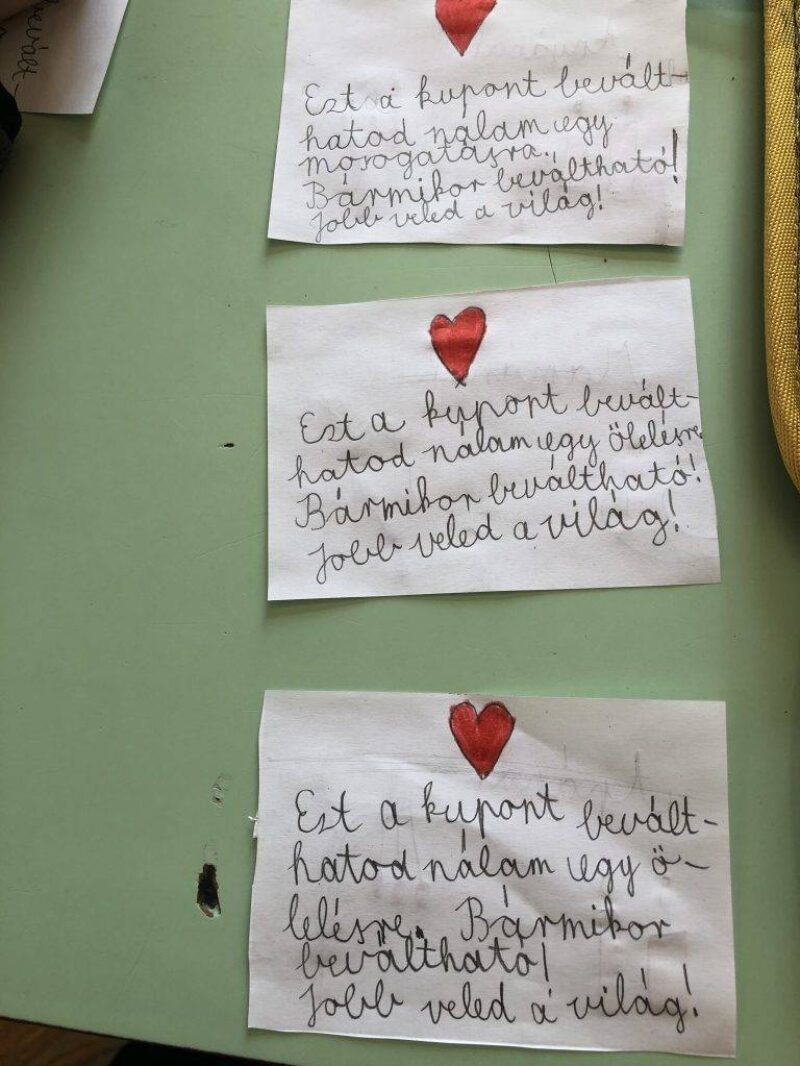 bevált-
Ezt a kupont bevált-
hatod nálam egy
mosogatásra.
Bármikor beváltható!
Jobb veled a világ!
Ezt a kupont bevált-
hatod nálam egy ölelésre.
Bármikor beváltható!
Jobb veled a világ!
Ezt a kupont bevált-
hatod nálam egy ö-
lelésre. Bármikor
beváltható!
Jobb veled a világ!